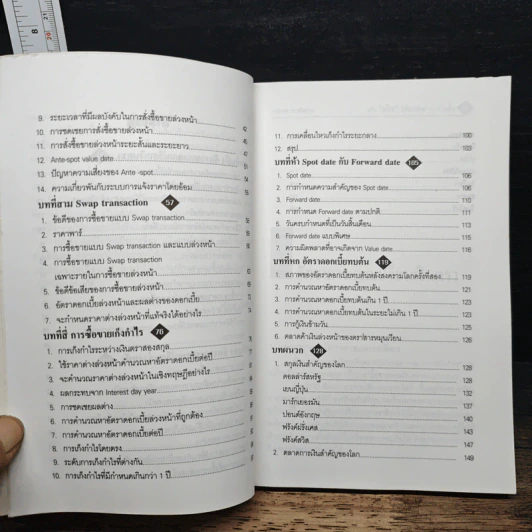 9. ระยะเวลาที่มีผลบังคับในการสั่งซื้อขายล่วงหน้า
10. การชดเชยการสั่งซื้อขายล่วงหน้า 42
11. การสั่งซื้อขายล่วงหน้าระยะสั้นและระยะยาว 45
12. Ante-spot value date
13. ปัญหาความเสี่ยงของ Ante -spot
14. ความเกี่ยวพันกับระบบการแจ้งราคาโดยอ้อม
บทที่สาม Swap transaction 57
1. ข้อดีของการซื้อขายแบบ Swap transaction
2. ราคาพาร์
3. การซื้อขายแบบ Swap transaction และแบบล่วงหน้า
4. การซื้อขายแบบ Swap transaction
เฉพาะรายในการซื้อขายล่วงหน้า
5. ข้อดีข้อเสียของการซื้อขายล่วงหน้า
6. อัตราดอกเบี้ยล่วงหน้าและผลต่างของดอกเบี้ย
7. จะกำหนดราคาต่างล่วงหน้าที่แท้จริงได้อย่างไร
บทที่สี่ การซื้อขายเก็งกำไร 76
1. การเก็งกำไรระหว่างเงินตราสองสกุล
2. ใช้ราคาต่างล่วงหน้าคำนวณหาอัตราดอกเบี้ยต่อปี
3. จะคำนวณราคาต่างล่วงหน้าในเชิงทฤษฎีอย่างไร
4. ผลกระทบจาก Interest day year
5. การชดเชยผลต่าง
6. การคำนวณอัตราดอกเบี้ยล่วงหน้าที่ถูกต้อง
7. การคำนวณหาอัตราดอกเบี้ยต่อปี
8. การเก็งกำไรโดยตรง
9. ระดับการเก็งกำไรที่ต่างกัน
10. การเก็งกำไรที่มีกำหนดเกินกว่า 1 ปี
11. การเคลื่อนไหวเก็งกำไรระยะกลาง 100
12. สรุป 103
บทที่ห้า Spot date กับ Forward date 105
1. Spot date 106
2. การกำหนดความสำคัญของ Spot date 106
3. Forward date 110
4. การกำหนด Forward date ตามปกติ 111
5. วันครบกำหนดที่เป็นวันสิ้นเดือน 113
6. Forward date แบบพิเศษ 115
7. ความผิดพลาดที่อาจเกิดจาก Value date 117
บทที่หก อัตราดอกเบี้ยทบต้น 119
1. สภาพของอัตราดอกเบี้ยทบต้นหลังสงครามโลกครั้งที่สอง 120
2. การคำนวณหาอัตราดอกเบี้ยทบต้น 121
3. การคำนวณหาดอกเบี้ยทบต้นเกิน 1 ปี 123
4. การคำนวณหาดอกเบี้ยทบต้นในระยะไม่เกิน 1 ปี 123
5. การกู้เงินข้ามวัน 125
6. ตลาดค้าเงินล่วงหน้าของตราสารหมุนเวียน 126
บทผนวก 128
1. สกุลเงินสำคัญของโลก 128
ดอลลาร์สหรัฐ 128
เยนญี่ปุ่น 132
มาร์กเยอรมัน 137
ปอนด์อังกฤษ 140
ฟรังค์ฝรั่งเศส 143
ฟรังค์สวิส 147
2. ตลาดการเงินสำคัญของโลก 149